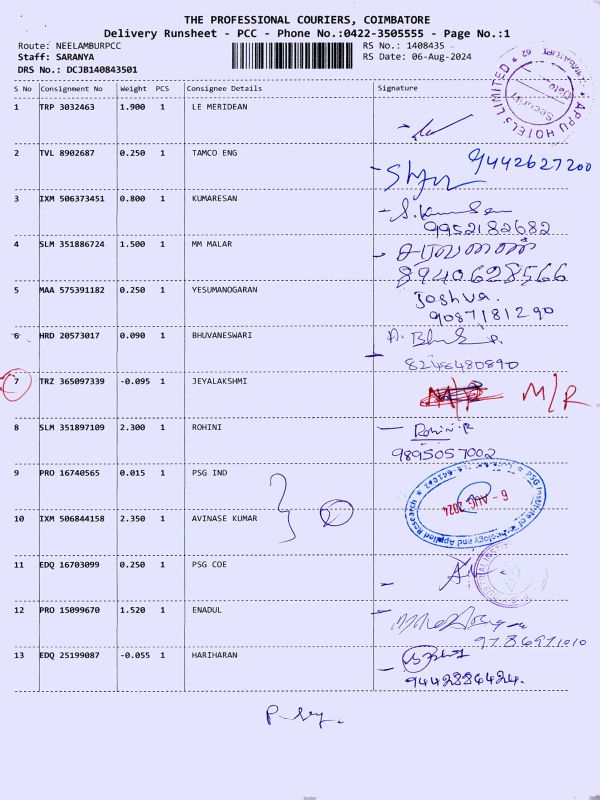 THE PROFESSIONAL COURIERS, COIMBATORE
Delivery Runsheet - PCC - Phone No.:0422-3505555 - Page No.:1
Route: NEELAMBURPCC RS No.: 1408435
Staff: SARANYA RS Date: 06-Aug-2024
DRS No.: DCJB140843501
S No Consignment No Weight PCS Consignee Details Signature
1 TRP 3032463 1.900 1 LE MERIDEAN
APPU HOTELS LIMITED
Security
Date
2 TVL 8902687 0.250 1 TAMCO ENG 9442627200
3 IXM 506373451 0.800 1 KUMARESAN
9952182682
4 SLM 351886724 1.500 1 MM MALAR சரவணன்
8940628566
5 MAA 575391182 0.250 1 YESUMANOGARAN Joshva.
9087181290
6 HRD 20573017 0.090 1 BHUVANESWARI
8248480890
7 TRZ 365097339 -0.095 1 JEYALAKSHMI M/R
8 SLM 351897109 2.300 1 ROHINI Rohini.R
9895057002
9 PRO 16740565 0.015 1 PSG IND
PSG Institute of Technology and Applied Research
6 - AUG 2024
10 IXM 506844158 2.350 1 AVINASE KUMAR 2
11 EDQ 16703099 0.250 1 PSG COE
12 PRO 15099670 1.520 1 ENADUL
9786971010
13 EDQ 25199087 -0.055 1 HARIHARAN
9442886424.